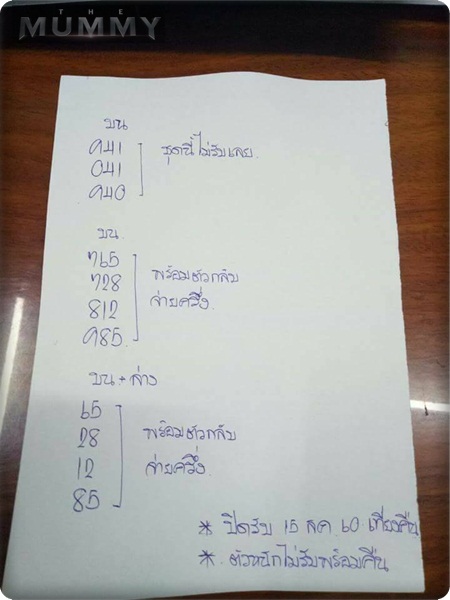 THE
MUMMY
บน
941
041
940
ชุดนี้ไม่รับเลย
บน
765
728
812
985
พร้อมตัวกลับ
จ่ายครึ่ง
บน + ล่าง
65
28
12
85
พร้อมตัวกลับ
จ่ายครึ่ง
* ปิดรับ 15 สค 60 เที่ยงคืน
* ตัวหนักไม่รับพร้อมคืน